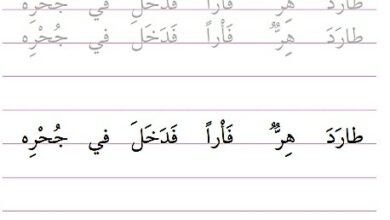 طارَدَ هِرٌّ فَأْراً فَدَخَلَ في جُحْرِه
طارَدَ هِرٌّ فَأْراً فَدَخَلَ في جُحْرِه
طارَدَ هِرٌّ فَأْراً فَدَخَلَ في جُحْرِه